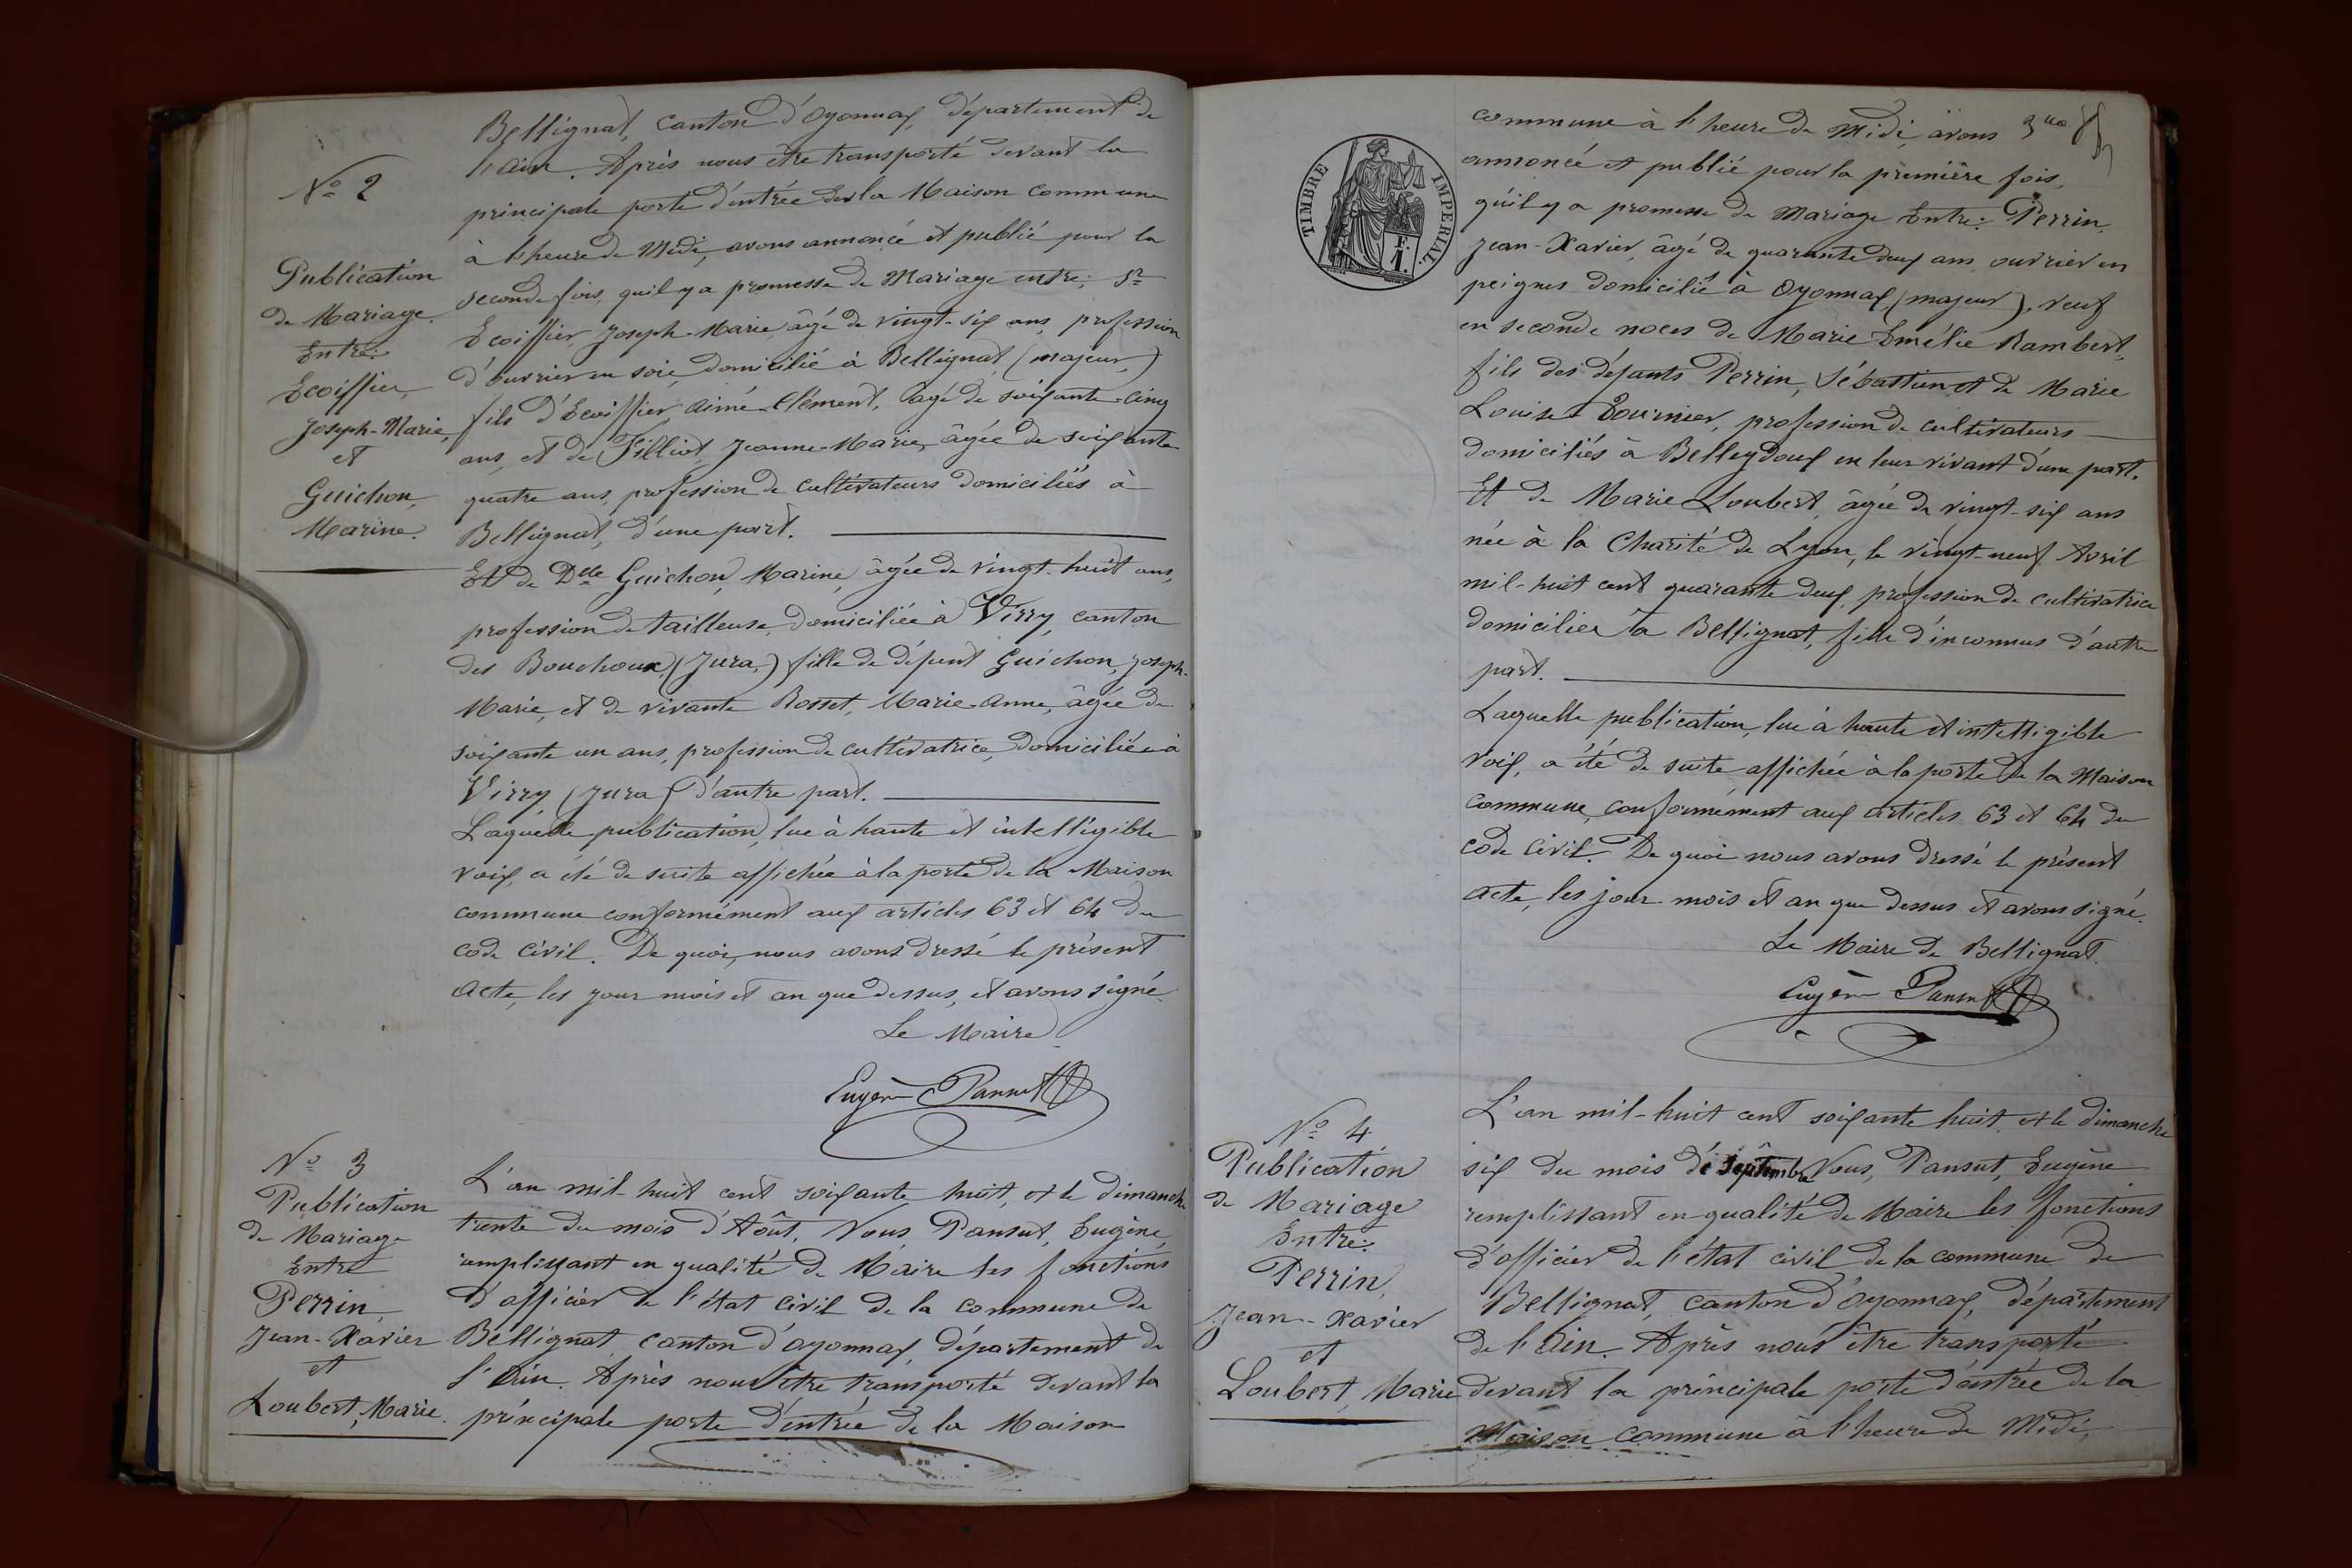 Bellignat, canton d'Oyonnax, département de
l'ain. Après nous être transporté devant la
N° 2
principale porte d'entrée de la Maison commune
à l'heure de Midi, avons annoncé et publié pour la
seconde fois, qu'il y a promesse de Mariage entre: Sr
Ecoiffier, Joseph-Marie, âgé de vingt-six ans, profession
d'ouvrier en soie, domicilié à Bellignat, (majeur,)
fils d'Ecoiffier Aimé-Clément, âgé de soixante-cinq
ans, et de Filliot, Jeanne-Marie, âgée de soixante
quatre ans, profession de cultivateurs domiciliés à
Bellignat, d'une part.
Publication
de Mariage
Entre:
Ecoiffier,
Joseph-Marie,
et
Guichon,
Marine.
Et de Dlle Guichon, Marine, âgée de vingt-huit ans,
profession de tailleuse, domiciliée à Viry, canton
des Bouchoux, (Jura,) fille de défunt Guichon, Joseph-
Marie, et de vivante Rosset, Marie-Anne, âgée de
soixante un ans, profession de cultivatrice, domiciliée à
Viry (Jura) d'autre part.
Laquelle publication, lue à haute et intelligible
voix, a été de suite affichée à la porte de la Maison
commune conformément aux articles 63 et 64 du
code civil. De quoi, nous avons dressé le présent
acte, les jour mois et an que dessus, et avons signé.
Le Maire
Eugène Pansut
N° 3
Publication
de Mariage
Entre
Perrin,
Jean-Xavier
et
Loubert, Marie.
L'an mil-huit cent soixante huit, et le dimanche
trente du mois d'Aôut, Nous, Pansut, Eugène,
remplissant en qualité de Maire les fonctions
d'officier de l'état civil de la commune de
Bellignat, canton d'oyonnax, département de
l'Ain. Après nous être transporté devant la
principale porte d'entrée de la Maison
commune à l'heure de Midi, avons
annoncé et publié pour la première fois,
qu'il y a promesse de Mariage Entre: Perrin,
Jean-Xavier, âgé de quarante deux ans, ouvrier en
peignes domicilié à Oyonnax, (majeur), veuf
en seconde noces de Marie Emélie Rambert,
fils des défunts Perrin, Sébastien, et de Marie
Louise Tournier, profession de cultivateurs
domiciliés à Belleydoux en leur vivant d'une part.
Et de Marie Loubert, âgée de vingt-six ans
née à la Charité de Lyon, le vingt-neuf Avril
mil-huit cent quarante deux, profession de cultivatrice
domiciliée à Bellignat, fille d'inconnus d'autre
part.
Laquelle publication, lue à haute et intelligible
voix, a été de suite affichée à la porte de la Maison
commune, conformément aux articles 63 et 64 du
code civil. De quoi nous avons dressé le présent
acte, les jour mois et an que dessus et avons signé.
Le Maire de Bellignat.
Eugène Pansut
TIMBRE IMPERIAL
F.
1.
N° 4
Publication
de Mariage
Entre:
Perrin,
Jean-Xavier
et
Loubert, Marie
L'an mil-huit cent soixante huit, et le dimanche
six du mois de Septembre Nous, Pansut, Eugène
remplissant en qualité de Maire les fonctions
d'officier de l'état civil de la commune de
Bellignat, canton d'Oyonnax, département
de l'Ain. Après nous être transporté
devant la principale porte d'entrée de la
Maison commune à l'heure de Midi,